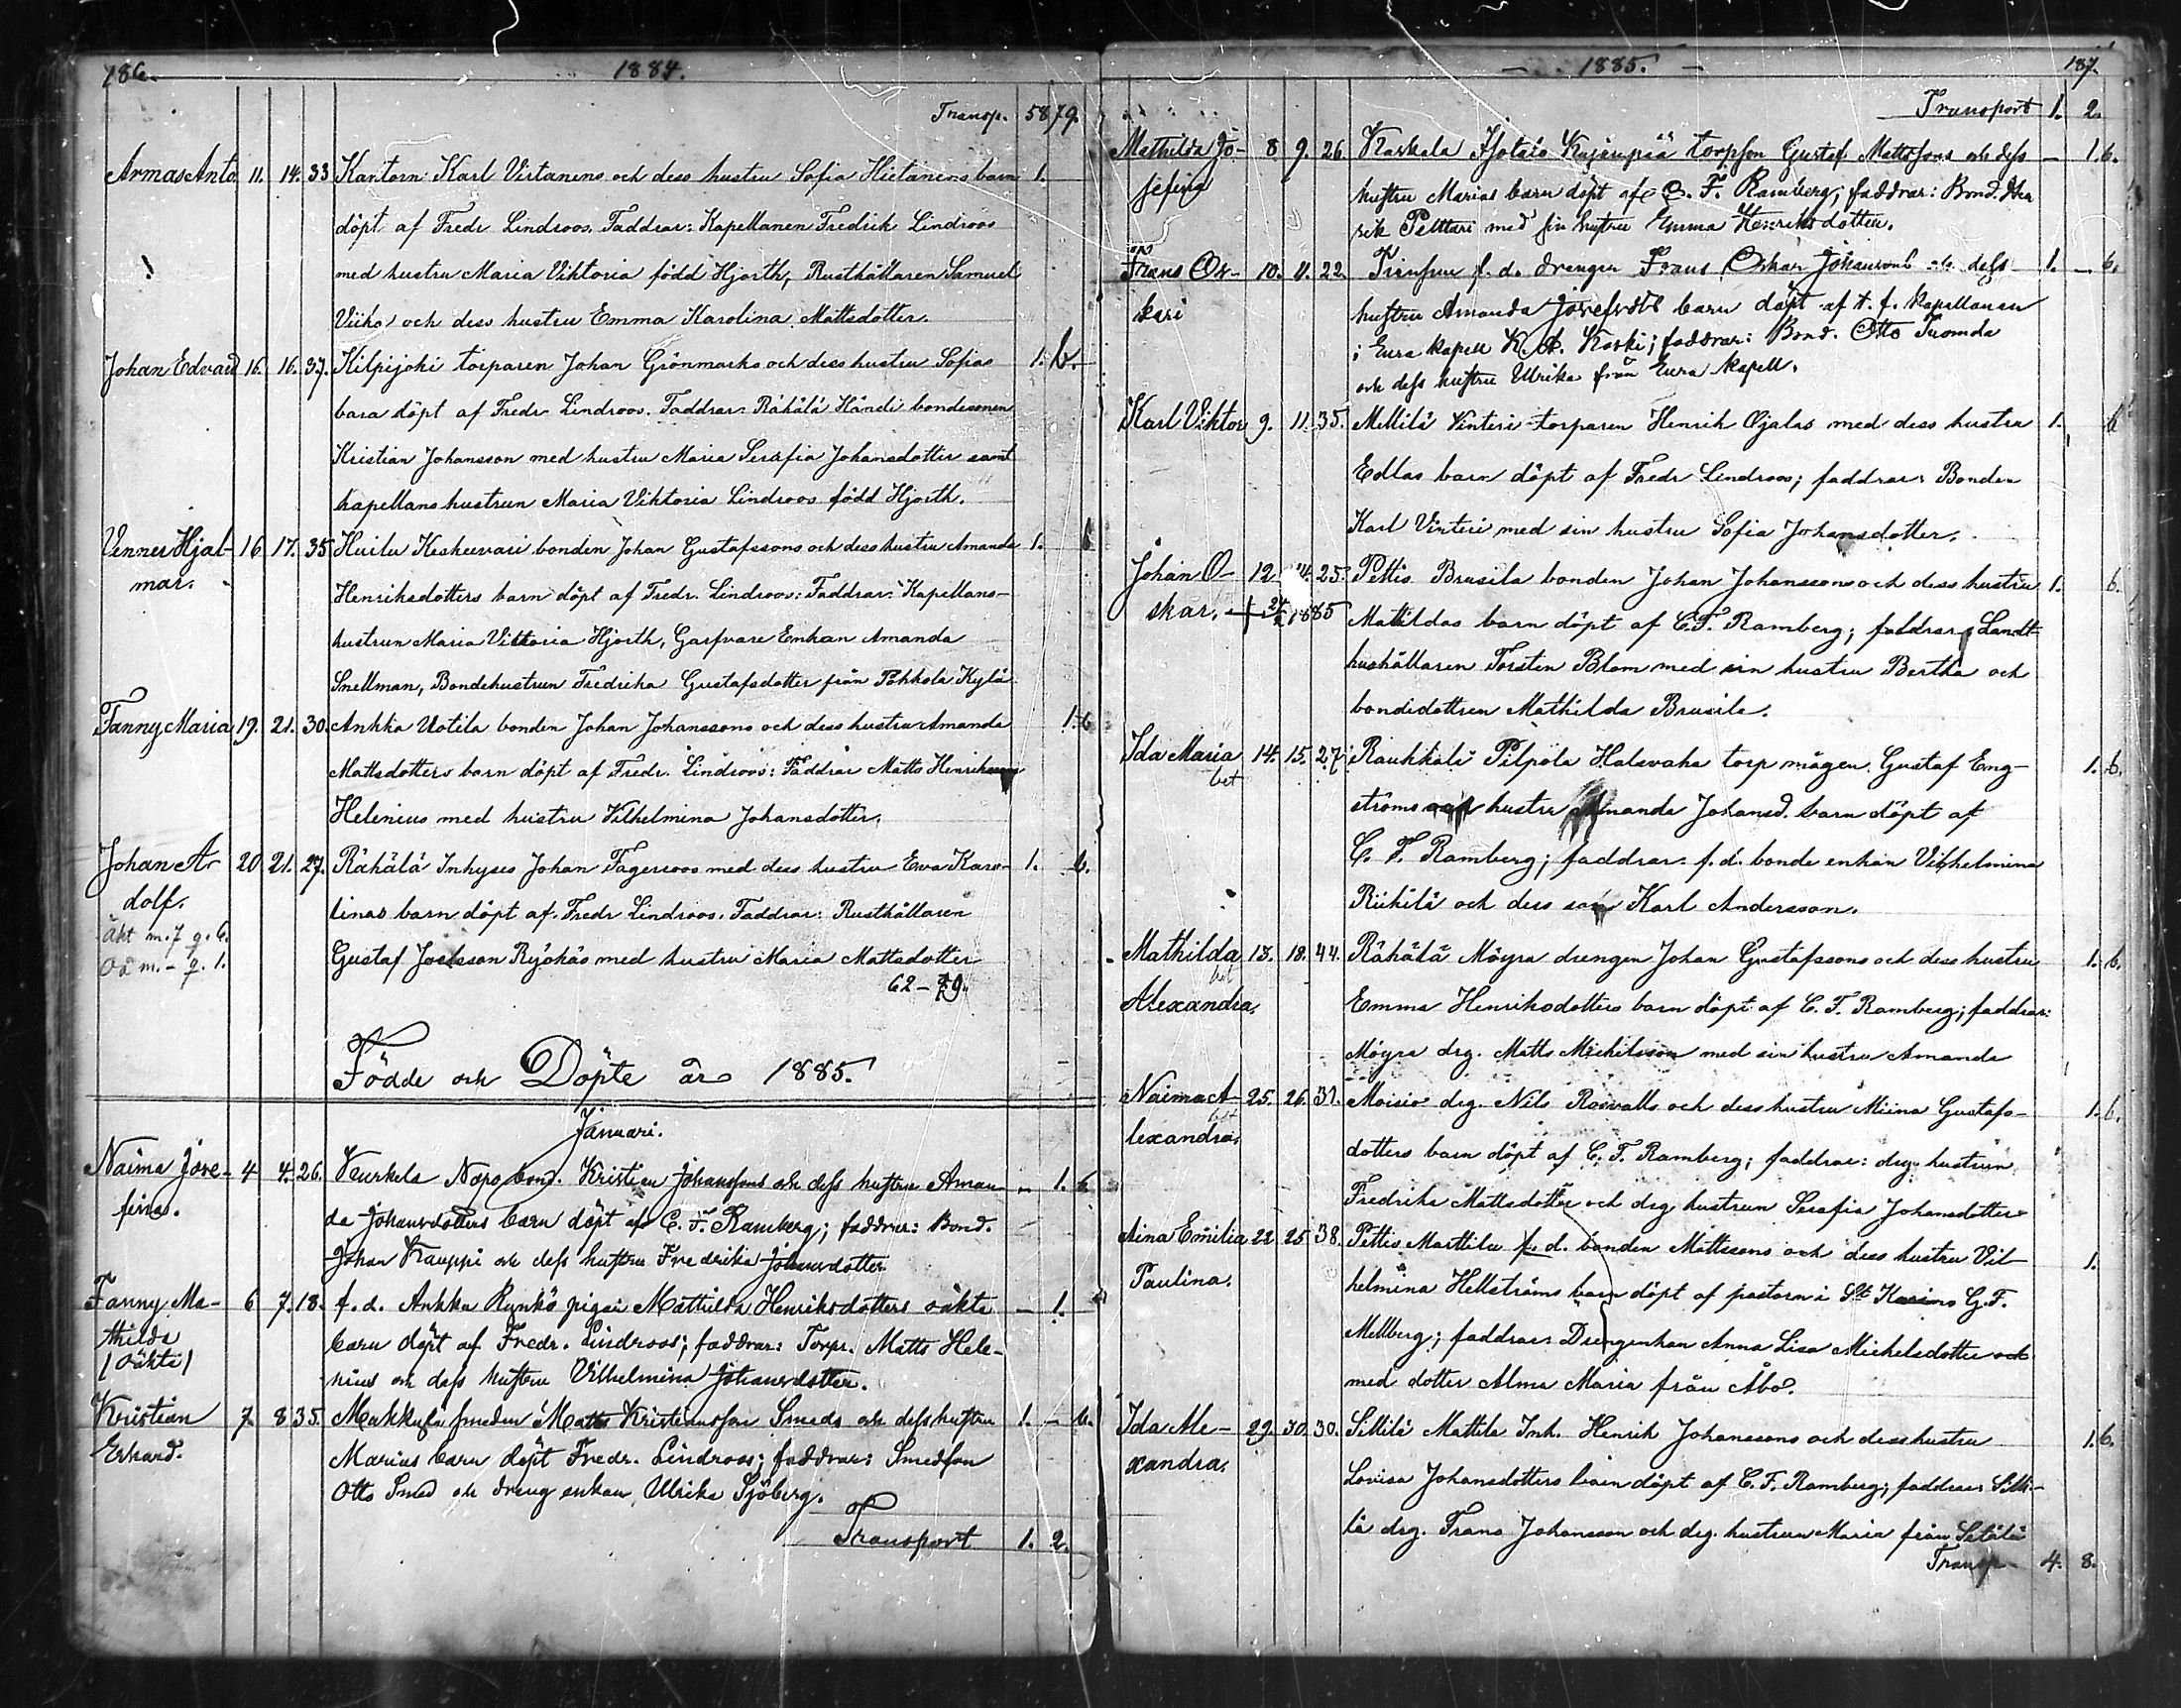 186.
1884.
Transp. 58 79.
Armas Anto 11. 14. 33 Kantorn Karl Virtanens och dess hustru Sofia Hietanens barn 1.
döpt af Fredr Lindroos. Faddrar: Kapellanen Fredrik Lindroos
med hustru Maria Viktoria född Hjorth, Rusthållaren Samuel
och dess hustru Emma Karolina Mattsdotter.
Johan Edvard 16. 16. 37. Kilpijoki torparen Johan Grönmarks och dess hustru Sofias 1. 6.
barn döpt af Fredr Lindroos. Faddrar: Rähälä Händi bondesonen
Kristian Johansson med hustru Maria Serafia Johansdotter samt
kapellans hustrun Maria Viktoria Lindroos född Hjorth.
Venner Hjal- 16. 17. 35 bonden Johan Gustafssons och dess hustru Amanda 1.
mar.
Henriksdotters barn döpt af Fredr. Lindroos: Faddrar: Kapellans-
hustrun Maria Viktoria Hjorth, Garfvare Enkan Amanda
Snellman, Bondehustrun Fredrika Gustafsdotter från Pohkola Kylä
Fanny Maria 19. 21. 30. Ankka Uotila bonden Johan Johanssons och dess hustru Amanda 1. 6
Mattsdotters barn döpt af Fredr. Lindroos: Faddrar Matts Henriksson
Helenius med hustru Vilhelmina Johansdotter.
Johan A- 20 21. 27. Rähälä Inhyses Johan Fagerroos med dess hustru Eva Karo- 1. 6.
dolf.
linas barn döpt af Fredr Lindroos. Faddrar: Rusthållaren
äkt m. 7 q. 6.
Gustaf Joelsson Ryökäs med hustru Maria Mattsdotter
oä m. - q. 1.
62 - 79.
Födde och Döpte år 1885.
Januari.
Naima Jose- 4 4. 26. Kurkela Napo bond. Kristian Johanssons och dess hustru Aman- - 1. 6
fina.
da Johansdotters barn döpt af C. F. Ramberg; faddrar: Bond.
Johan Kauppi och dess hustru Fredrika Johansdotter
Fanny Ma- 6 7. 18. f. d. Ankka Rynkö pigan Mathilda Henriksdotters oäkta - 1.
thilda
barn döpt af Fredr. Lindroos; faddrar: Torpr. Matts Hele-
(oäkta)
nius och dess hustru Vilhelmina Johansdotter.
Kristian 7. 8 35. smeden Matts Kristiansson Smeds och dess hustru 1. - 6.
Erhard.
Marias barn döpt Fredr. Lindroos; faddrar: Smedson
Otto Smed och dreng enkan Ulrika Sjöberg.
Transport 1. 2.
1885.
187.
Transport 1. 2.
Mathilda Jo- 8 9. 26 Kaskala Isotalo torpson Gustaf Mattssons och dess - 1. 6.
sefina
hustru Marias barn döpt af C. F. Ramberg; faddrar: Bond. Hen
rik Pelttari med sin hustru Emma Henriksdotter.
Frans Os- 10. 11. 22. f. d. drengen Frans Oskar Johanssons och dess 1. - 6.
kari
hustru Amanda Josefsdtrs barn döpt af t. f. kapellanen
i Eura kapell K. A. Koski; faddrar: Bond. Otto Tuomola
och dess hustru Ulrika från Eura kapell.
Karl Viktor 9. 11. 35. Mellilä Vinteri torparen Henrik Ojalas med dess hustru 1. 6
Edlas barn döpt af Fredr Lindroos; faddrar: Bonden
Karl Vinteri med sin hustru Sofia Johansdotter.
Johan O- 12 14. 25. Pettis Brusila bonden Johan Johanssons och dess hustru 1. 6.
skar. + 24/2 1885
Mathildas barn döpt af C. F. Ramberg; faddrar: Landt-
hushållaren Torsten Blom med sin hustru Bertha och
bondedottren Mathilda Brusila.
Ida Maria 14. 15. 27. Raukkala Pilpola Halavaha torp mågen Gustaf Eng- 1. 6.
bet
ströms och hustru Amanda Johansd. barn döpt af
C. F. Ramberg; faddrar: f. d. bonde enkan Vilhelmina
Riihilä och dess son Karl Andersson.
Mathilda 13. 18. 44. Rähälä Möyrä drengen Johan Gustafssons och dess hustru 1. 6.
bet
Alexandra.
Emma Henriksdotters barn döpt af C. F. Ramberg; faddrar:
Möyrä drg. Matts Michelsson med sin hustru Amanda
Naima A- 25. 26. 37. Moisio drg. Nils Rosvalls och dess hustru Miina Gustafs- 1. 6.
bet
lexandra.
dotters barn döpt af C. F. Ramberg; faddrar: drg hustrun
Fredrika Mattsdotter och drg hustrun Serafia Johansdotter
Aina Emilia 22 25 38. Pettis Marttila f. d. bonden Mattssons och dess hustru Vil- 1.
Paulina.
helmina Hellströms barn döpt af pastorn i St Karins G. F.
Mellberg; faddrar: Drengenkan Anna Lisa Michelsdotter och
med dotter Alma Maria från Åbo.
Ida Ale- 29. 30. 30. Sillilä Mattila Inh. Henrik Johanssons och dess hustru 1. 6.
xandra.
Lovisa Johansdotters barn döpt af C. F. Ramberg; faddrar: Silli-
lä drg. Frans Johansson och drg. hustrun Maria från Setälä
Transp. 4. 8.